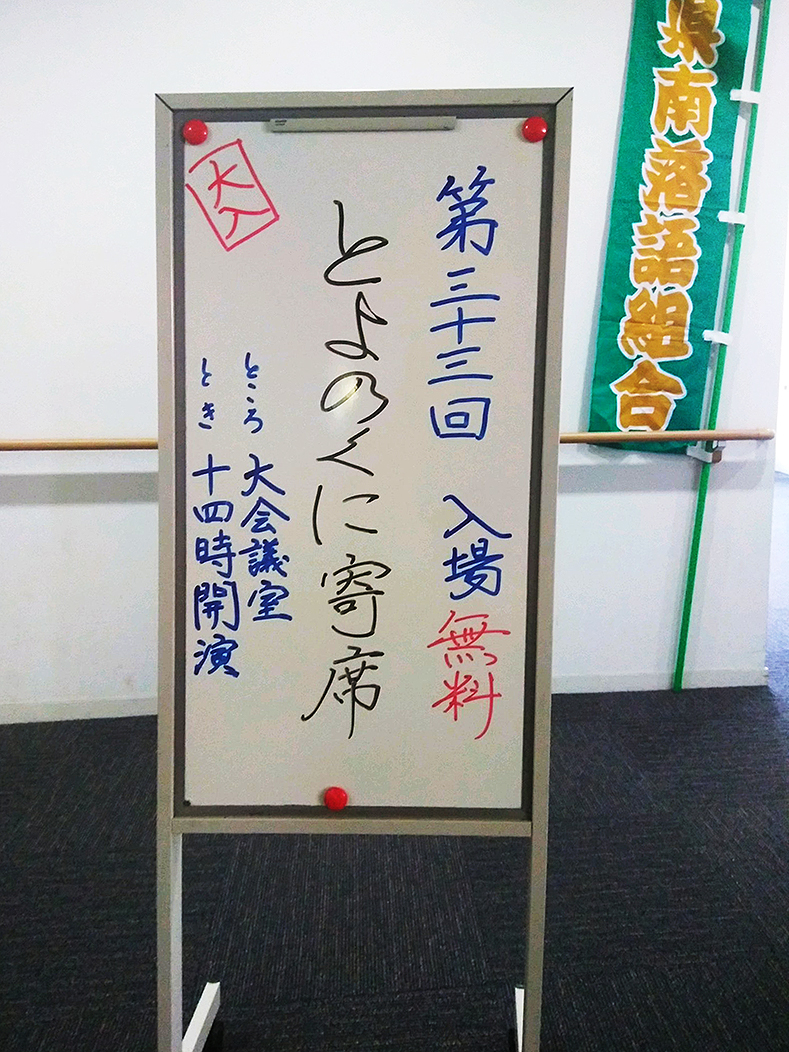 第三十三回 入場無料
とよのくに寄席
ところ 大会議室
とき 十四時開演
大入
県南落語組合